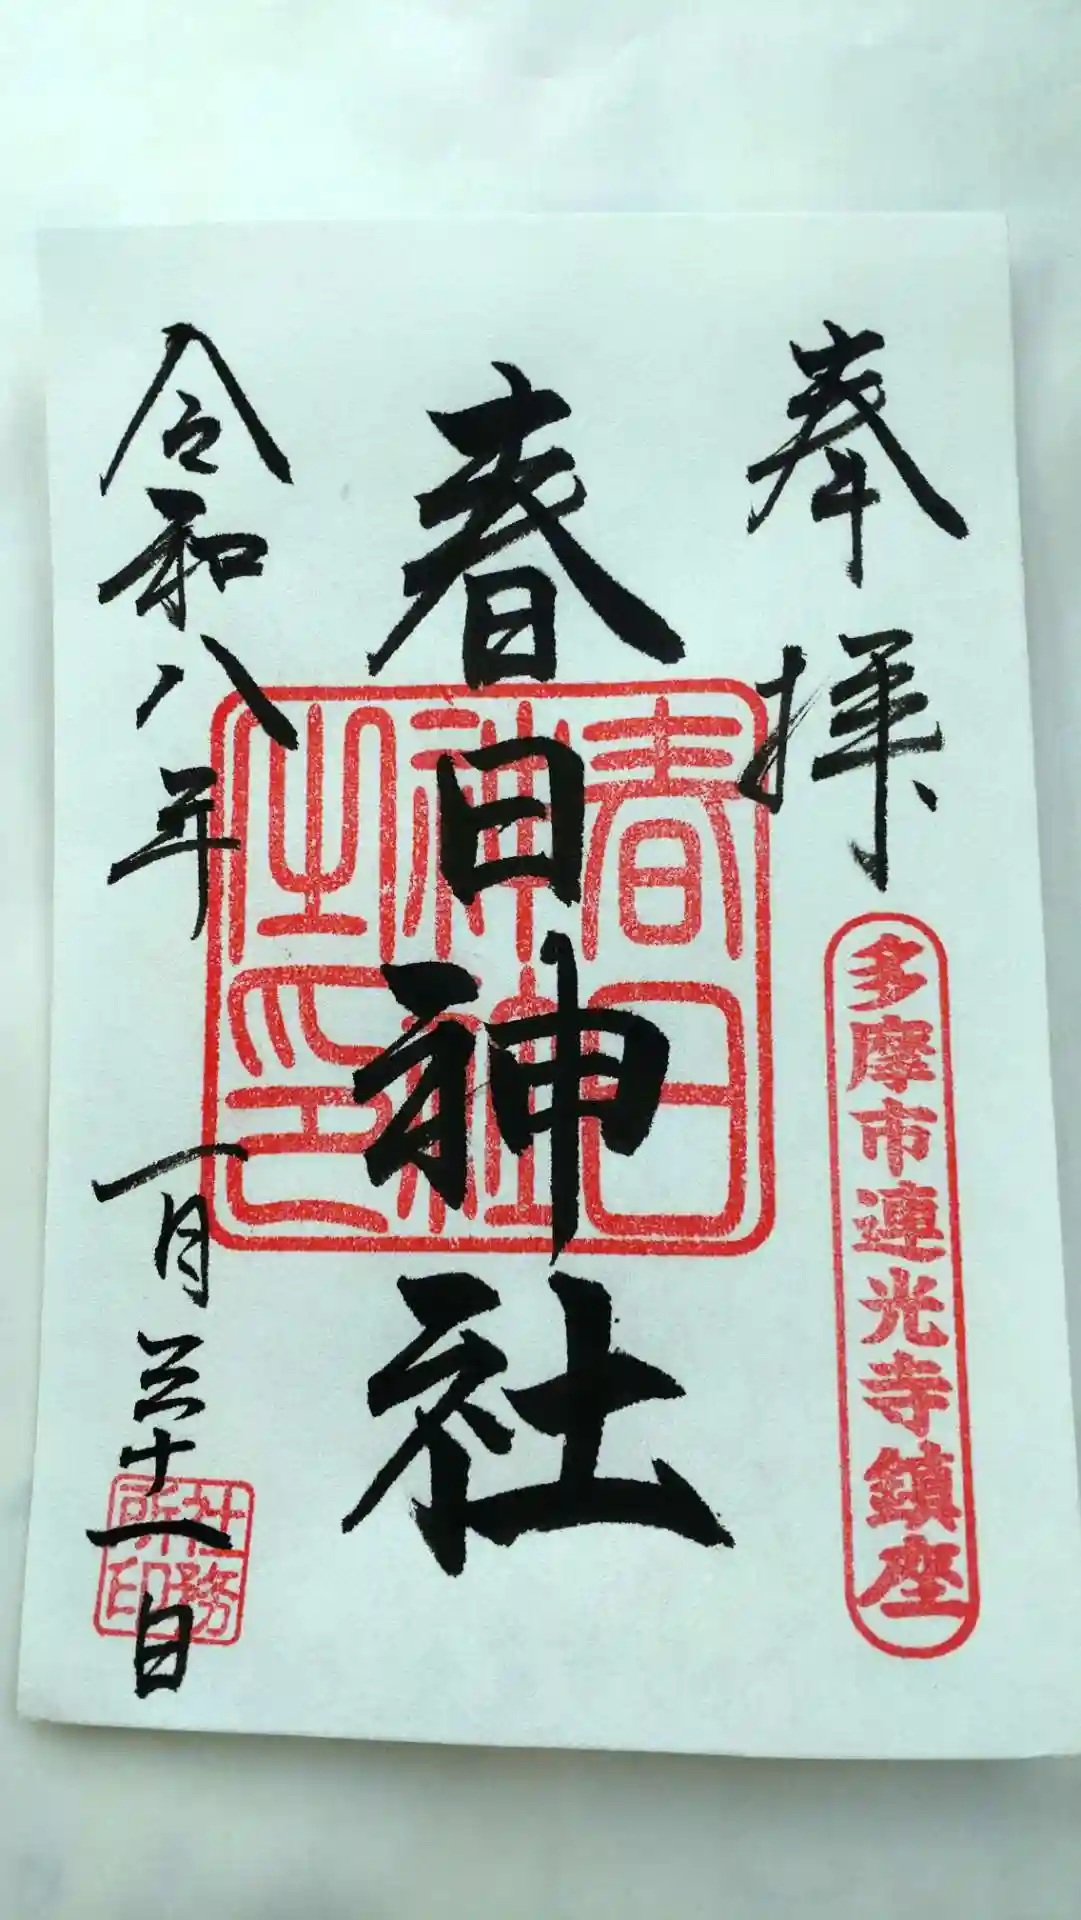 奉拝
多摩市連光寺鎮座
春日神社
春日
神社
之印
令和八年 一月三十一日
社務
所印